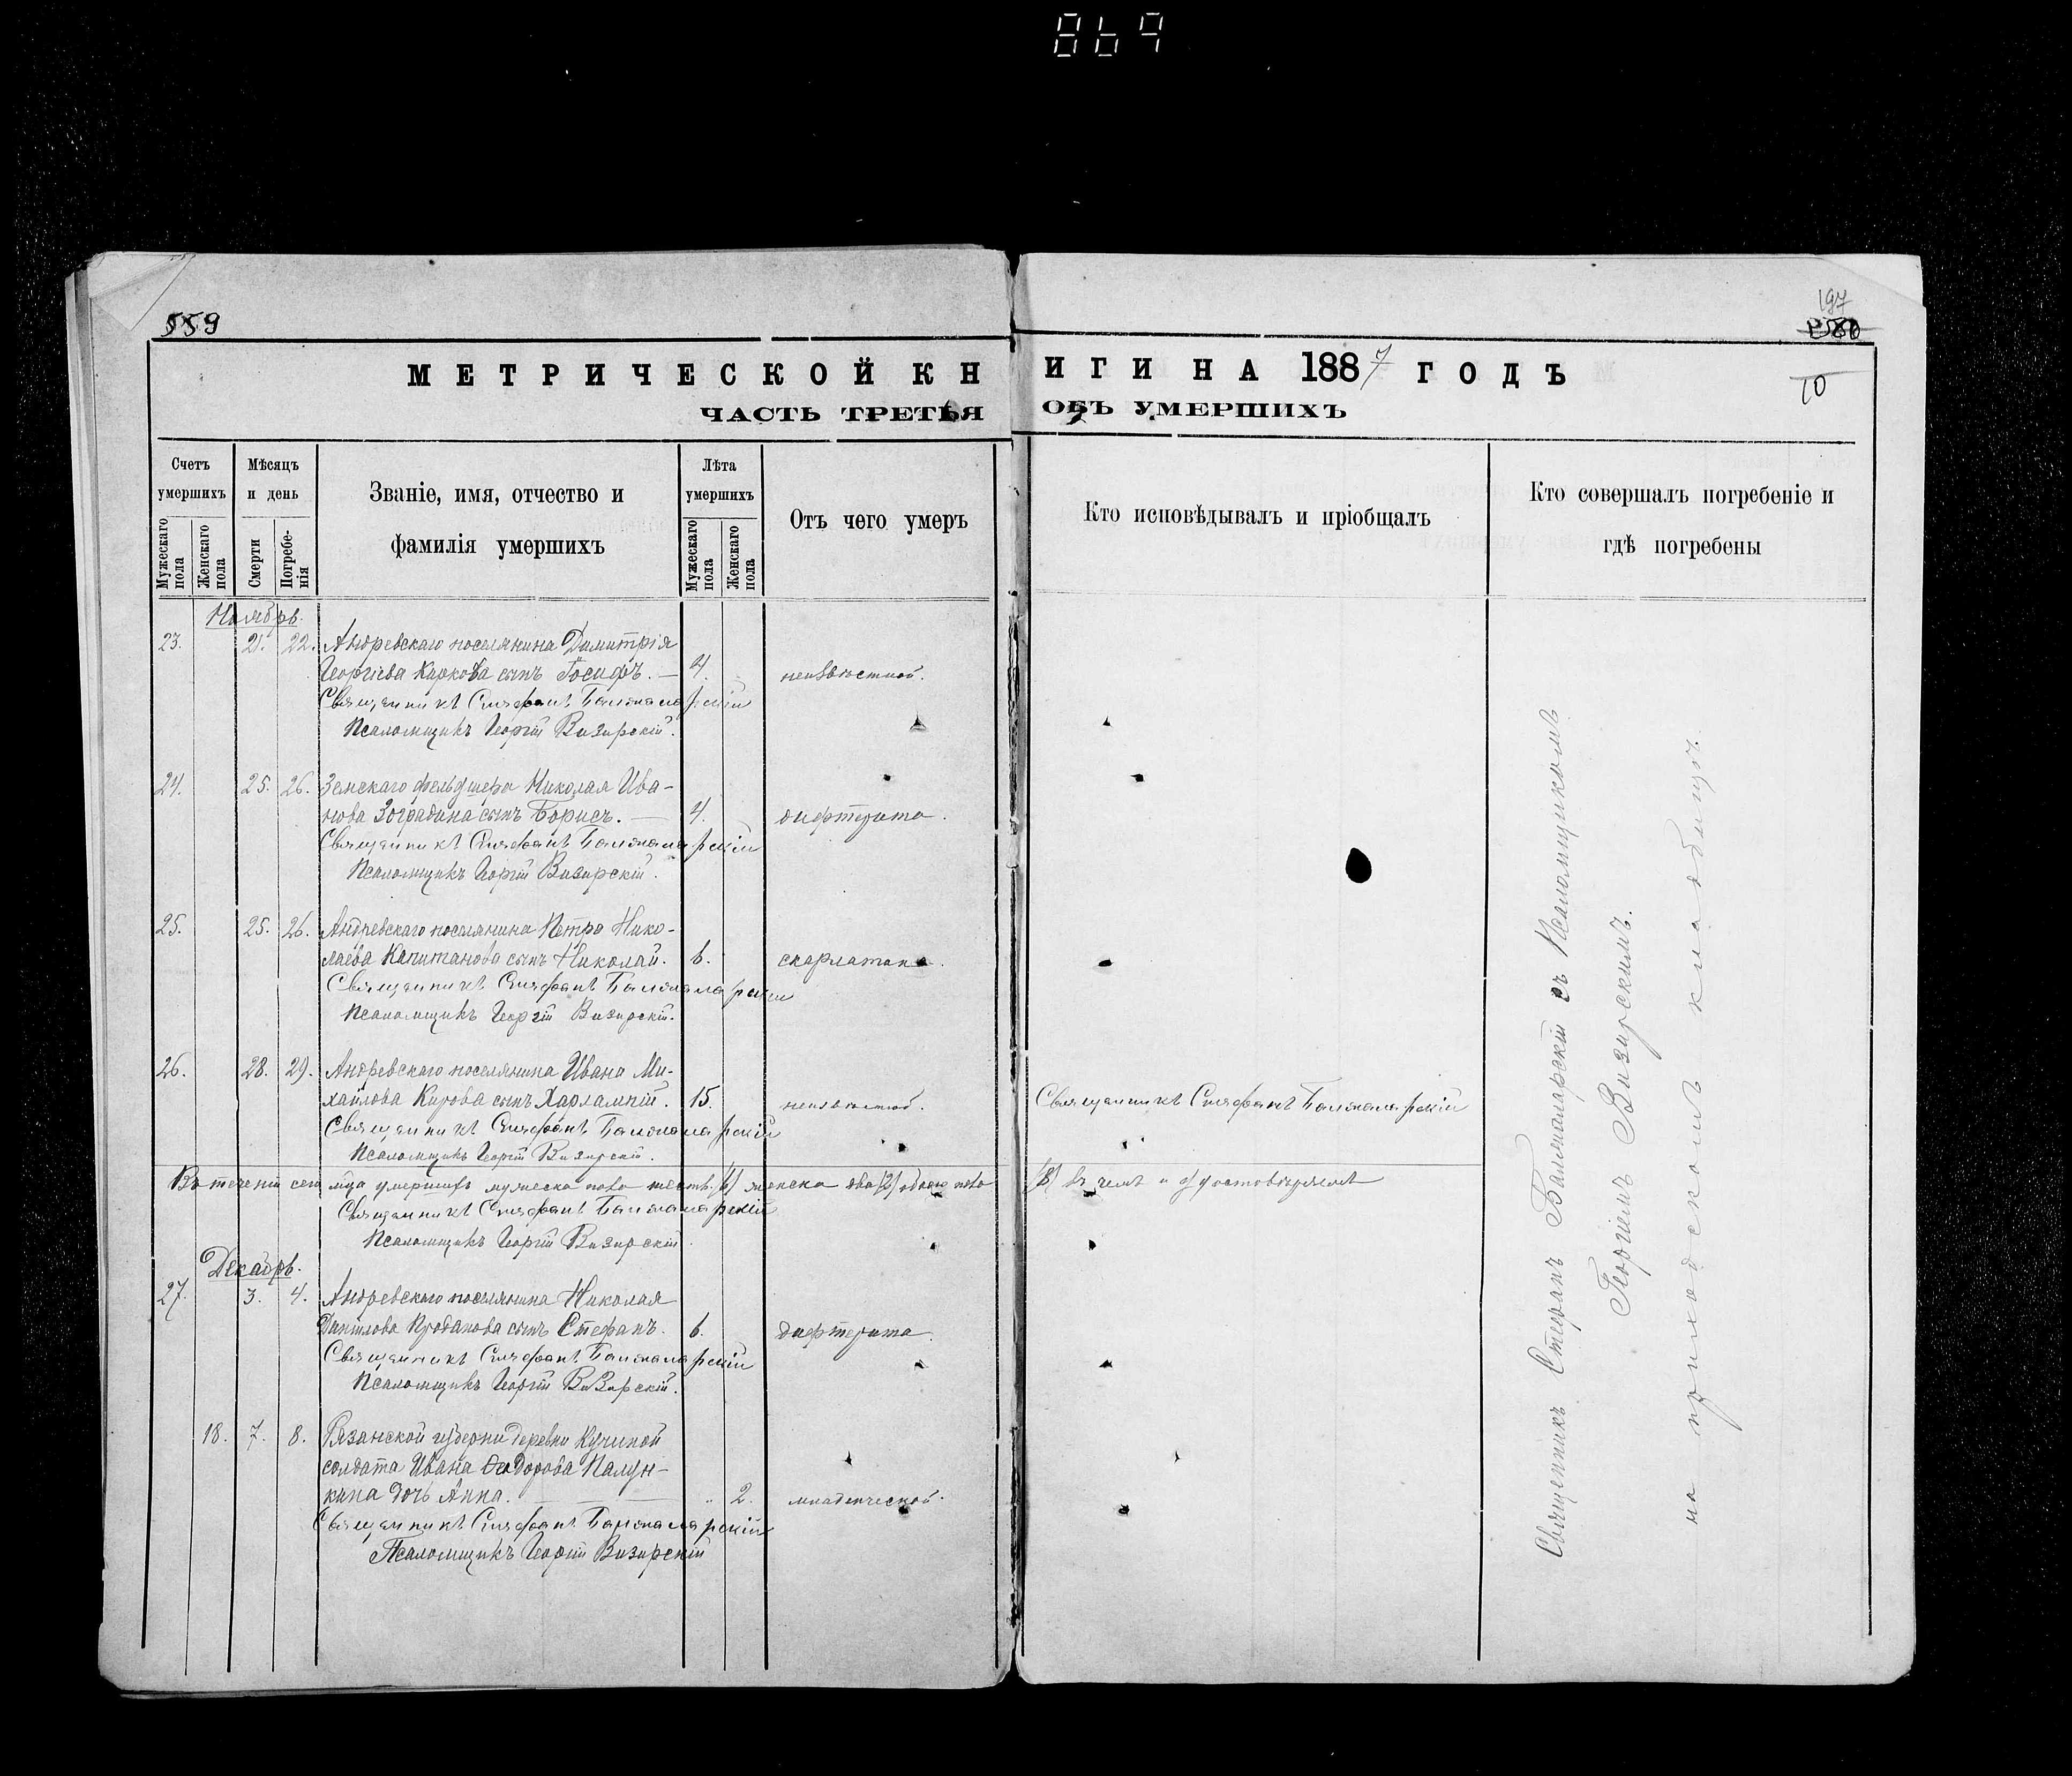 869
559
197
МЕТРИЧЕСКОЙ КНИГИ НА 1887 ГОДЪ
10
ЧАСТЬ ТРЕТЬЯ ОБЪ УМЕРШИХЪ
Счетъ умершихъ
Мѣсяцъ и день
Званіе, имя, отчество и фамилія умершихъ
Лѣта умершихъ
Отъ чего умеръ
Кто исповѣдывалъ и пріобщалъ
Кто совершалъ погребеніе и гдѣ погребены
Мужескаго пола
Женскаго пола
Смерти
Погребенія
Мужескаго пола
Женскаго пола
Ноябрь.
23. 21. 22. Андревскаго поселянина Димитрія
Георгіева Каркова сынъ Іосифъ. — 4. неизвѣстной.
Священникъ Стефанъ Балтамарскій
Псаломщикъ Георгій Визирскій.
24. 25. 26. Земскаго фельдшера Николая Ива-
нова Зоградина сынъ Борисъ. — 4. дифтерита.
Священникъ Стефанъ Балтамарскій
Псаломщикъ Георгій Визирскій.
25. 25. 26. Андревскаго поселянина Петра Нико-
лаева Капитанова сынъ Николай. 6. скарлатина.
Священникъ Стефанъ Балтамарскій
Псаломщикъ Георгій Визирскій.
26. 28. 29. Андревскаго поселянина Ивана Ми-
хайлова Кирова сынъ Харлампій. 15. неизвѣстной. Священникъ Стефанъ Балтамарскій
Священникъ Стефанъ Балтамарскій
Псаломщикъ Георгій Визирскій.
Въ теченіи сего м҃ца умершихъ мужеска пола шесть /6/ женска два /2/ обоего пола /8/ въ чемъ и удостовѣряемъ
Священникъ Стефанъ Балтамарскій
Псаломщикъ Георгій Визирскій.
Декабрь.
27. 3. 4. Андревскаго поселянина Николая
Данилова Проданова сынъ Стефанъ. 6. дифтерита.
Священникъ Стефанъ Балтамарскій
Псаломщикъ Георгій Визирскій.
18. 7. 8. Рязанской губерни деревни Кучиной
солдата Ивана Ѳеодорова Палун-
кина дочь Анна. — 2. младенческой.
Священникъ Стефанъ Балтамарскій
Псаломщикъ Георгій Визирскій
Священникъ Стефанъ Балтамарскій съ Псаломщикомъ
Георгіемъ Визирскимъ.
на приходскомъ кладбищѣ.